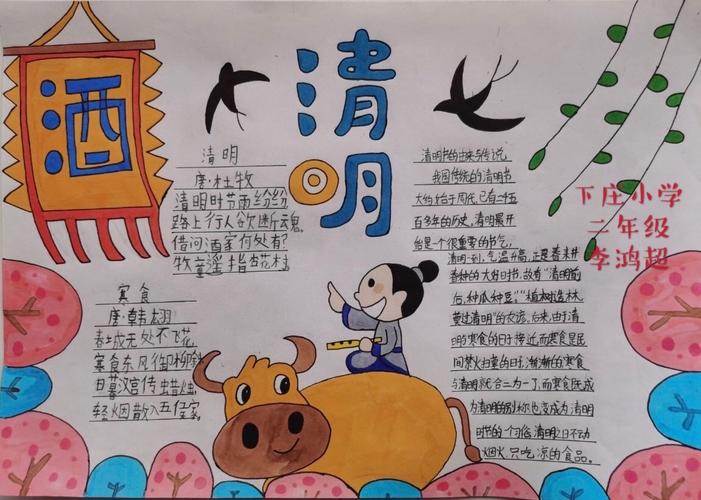 酒
清明
清明
唐·杜牧
清明时节雨纷纷
路上行人欲断魂。
借问酒家何处有?
牧童遥指杏花村
寒食
唐·韩翃
春城无处不飞花
寒食东风御柳斜
日暮汉宫传蜡烛
轻烟散入五侯家
清明节的由来与传说,
我国传统的清明节
大约始于周代,已有二千五
百多年的历史,清明最开
始是一个很重要的节气,
清明一到,气温升高,正是春耕
春种的大好时节,故有“清明前
后,种瓜种豆”,“植树造林,
莫过清明”的农谚。后来,由于清
明与寒食的日子接近,而寒食是民
间禁火扫墓的日子,渐渐的,寒食
与清明就合二为一了,而寒食既成
为清明的别称,也变成为清明
时节的一个习俗,清明之日不动
烟火,只吃凉的食品。
下庄小学
二年级
李鸿超